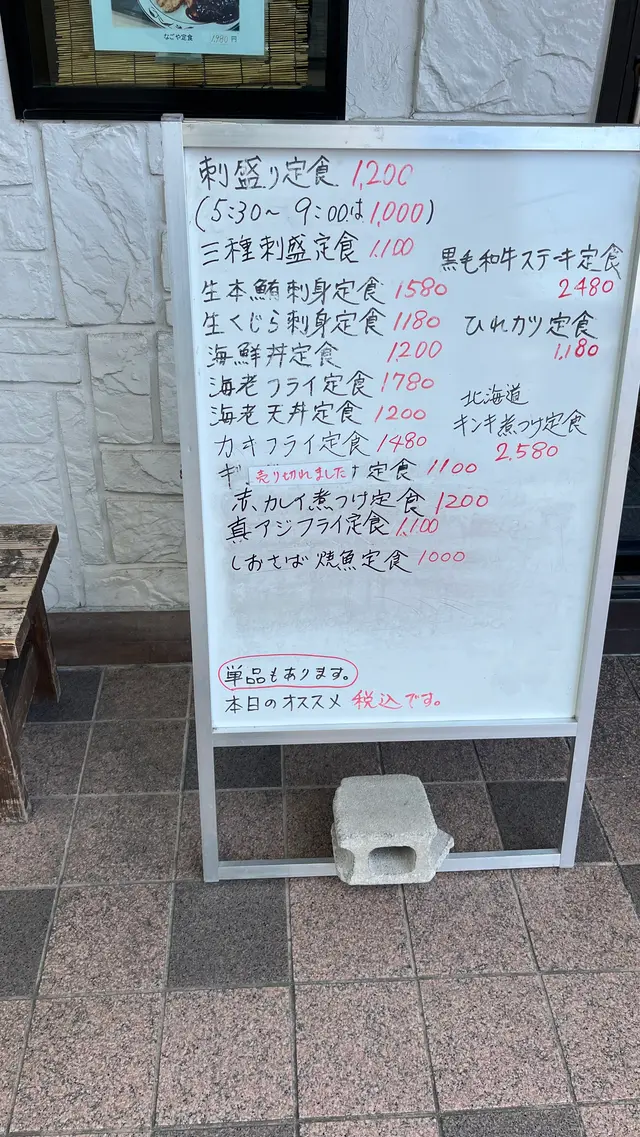 なごや定食 1,980円
刺盛り定食 1,200
(5:30〜9:00は1,000)
三種刺盛定食 1,100
生本鮪刺身定食 1580
生くじら刺身定食 1180
海鮮丼定食 1200
海老フライ定食 1780
海老天丼定食 1200
カキフライ定食 1480
ギ 売り切れました 定食 1100
赤カレイ煮つけ定食 1200
真アジフライ定食 1,100
しおさば焼魚定食 1000
黒毛和牛ステーキ定食
2480
ひれカツ定食
1,180
北海道
キンキ煮つけ定食
2,580
単品もあります。
本日のオススメ 税込です。